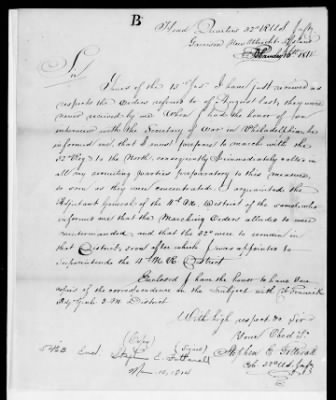 B
Head Quarters 32d Regt U.S. Infy
March 16th 1814
Sir
Yours of the 15 Inst I have just received as
respects the orders referred to of August last, they were
never received by me. When I had the honor of an
interview with the Secretary of War in Philadelphia he
informed me, that I must prepare to march with the
32d Regt to the North, consequently I immediately called in
all my recruiting parties preparatory to this measure,
so soon as they were concentrated. I acquainted the
Adjutant General of the 4th Mil. District of the same, who
informed me that the Marching Orders alluded to were
countermanded and that the 32d were to remain in
that District, soon after which I was appointed to
superintend the 4th M.R. District
Enclosed I have the honor to have
copies of the correspondence on the subject with
Adjt Genl 3 M. District
With high respect &c Sir
Your Obed St
Stephen E Fotterall
Col 32d U.S. Infy
(Copy) (Signed)
Encl Stephen E. Fotterall
16, 1814